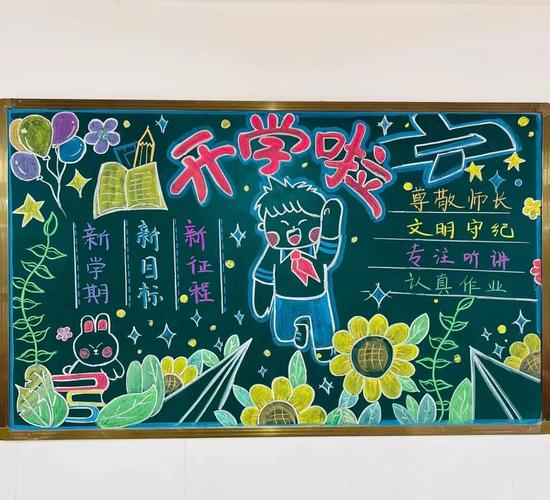 开学啦
新学期
新目标
新征程
尊敬师长
文明守纪
专注听讲
认真作业